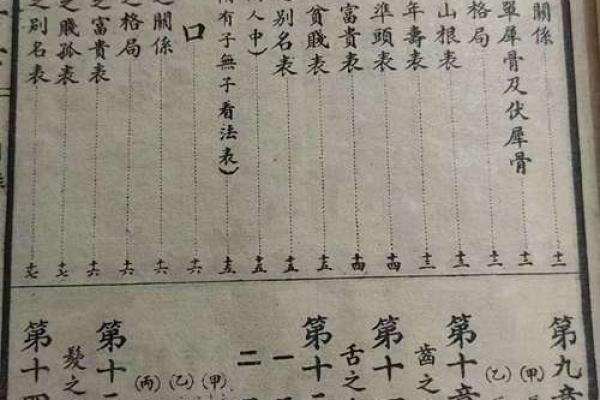 關係 十一
單犀骨及伏犀骨 十二
格局 十二
山根表
年壽表
準頭表 十四
富貴表 十四
貧賤表 十五
別名表 十五
人中) 十五
有子無子看法表) 十五
口 十六
關係 十六
之格局 十六
之富貴表 十六
之賤孤表 十七
之別名表 十七
第九章
(甲)
(乙)
第十章
齒之
第十
舌之
第十
一
二
(甲)
(乙)
(丙)
第十
髮之
第十四